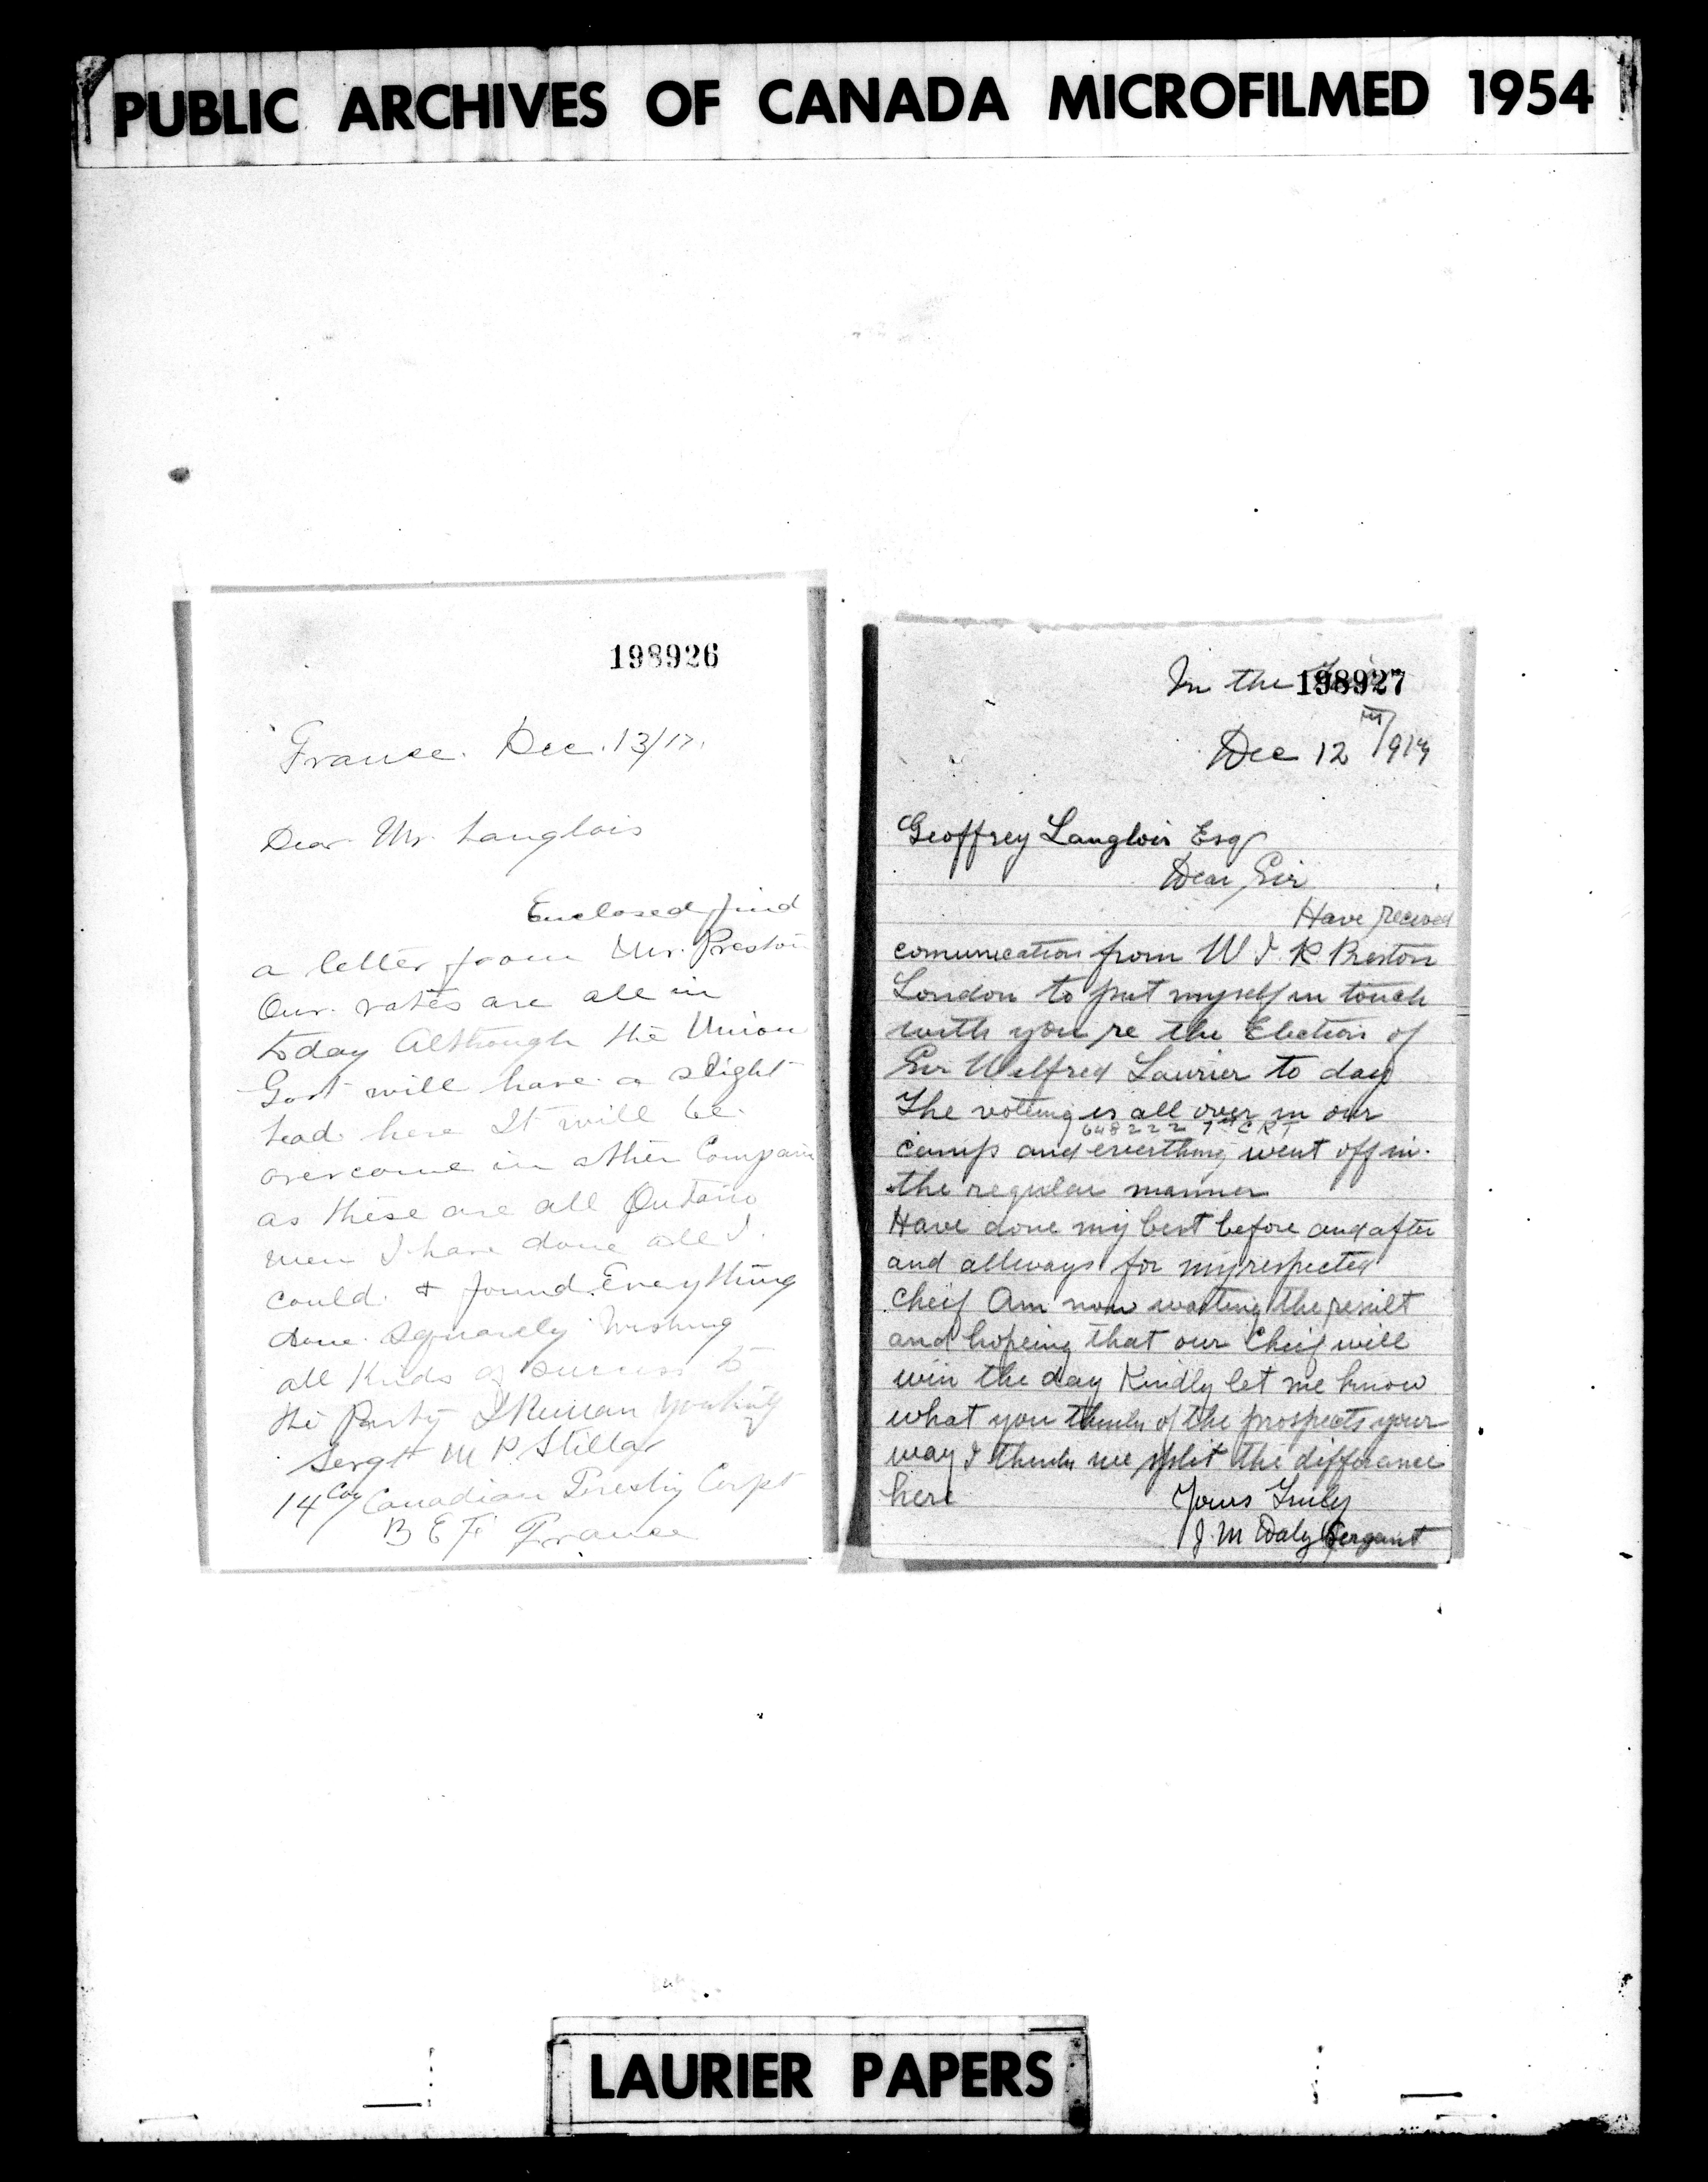 PUBLIC ARCHIVES OF CANADA MICROFILMED 1954
198926
France. Dec. 13/17.
Dear Mr. Langlois
Enclosed find
a letter from Mr. Preston
Our votes are all in
today Although the Union
Govt will have a slight
lead here It will be
overcome in other Compani
as these are all Ontario
men I have done all I
could & found Everything
done squarely Wishing
all Kinds of success to
the Party I Remain
Sergt M P. Stillar
14 Coy Canadian Forestry Corps
B E F France
198927
In the
Dec 12th/1917
Geoffrey Langlois Esq
Dear Sir
Have recieved
comunication from W. T. R Preston
London to put myself in touch
with you re the Election of
Sir Wilfred Laurier to day
The voting is all over in our
648222 7th C R T
camp and everthing went off in
the regular manner
Have done my best before and after
and allways for my respected
Cheif Am now waiting the result
and hopeing that our Cheif will
win the day Kindly let me know
what you think of the prospects your
way I think we split the differance
here
Yours Truly
J. M Daly Sergant
LAURIER PAPERS